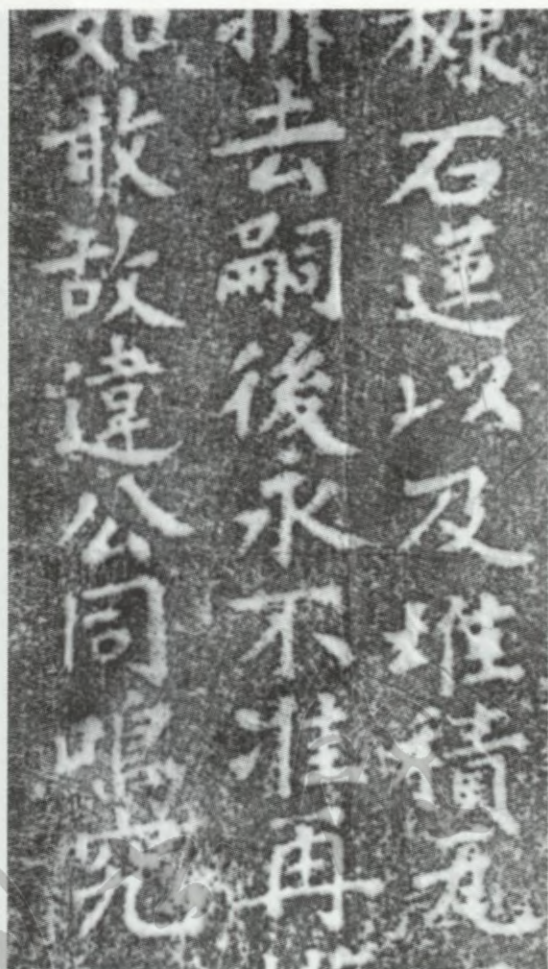 石蓮以及堆積瓦
拆去嗣後永不准再
如敢故違公同鳴究